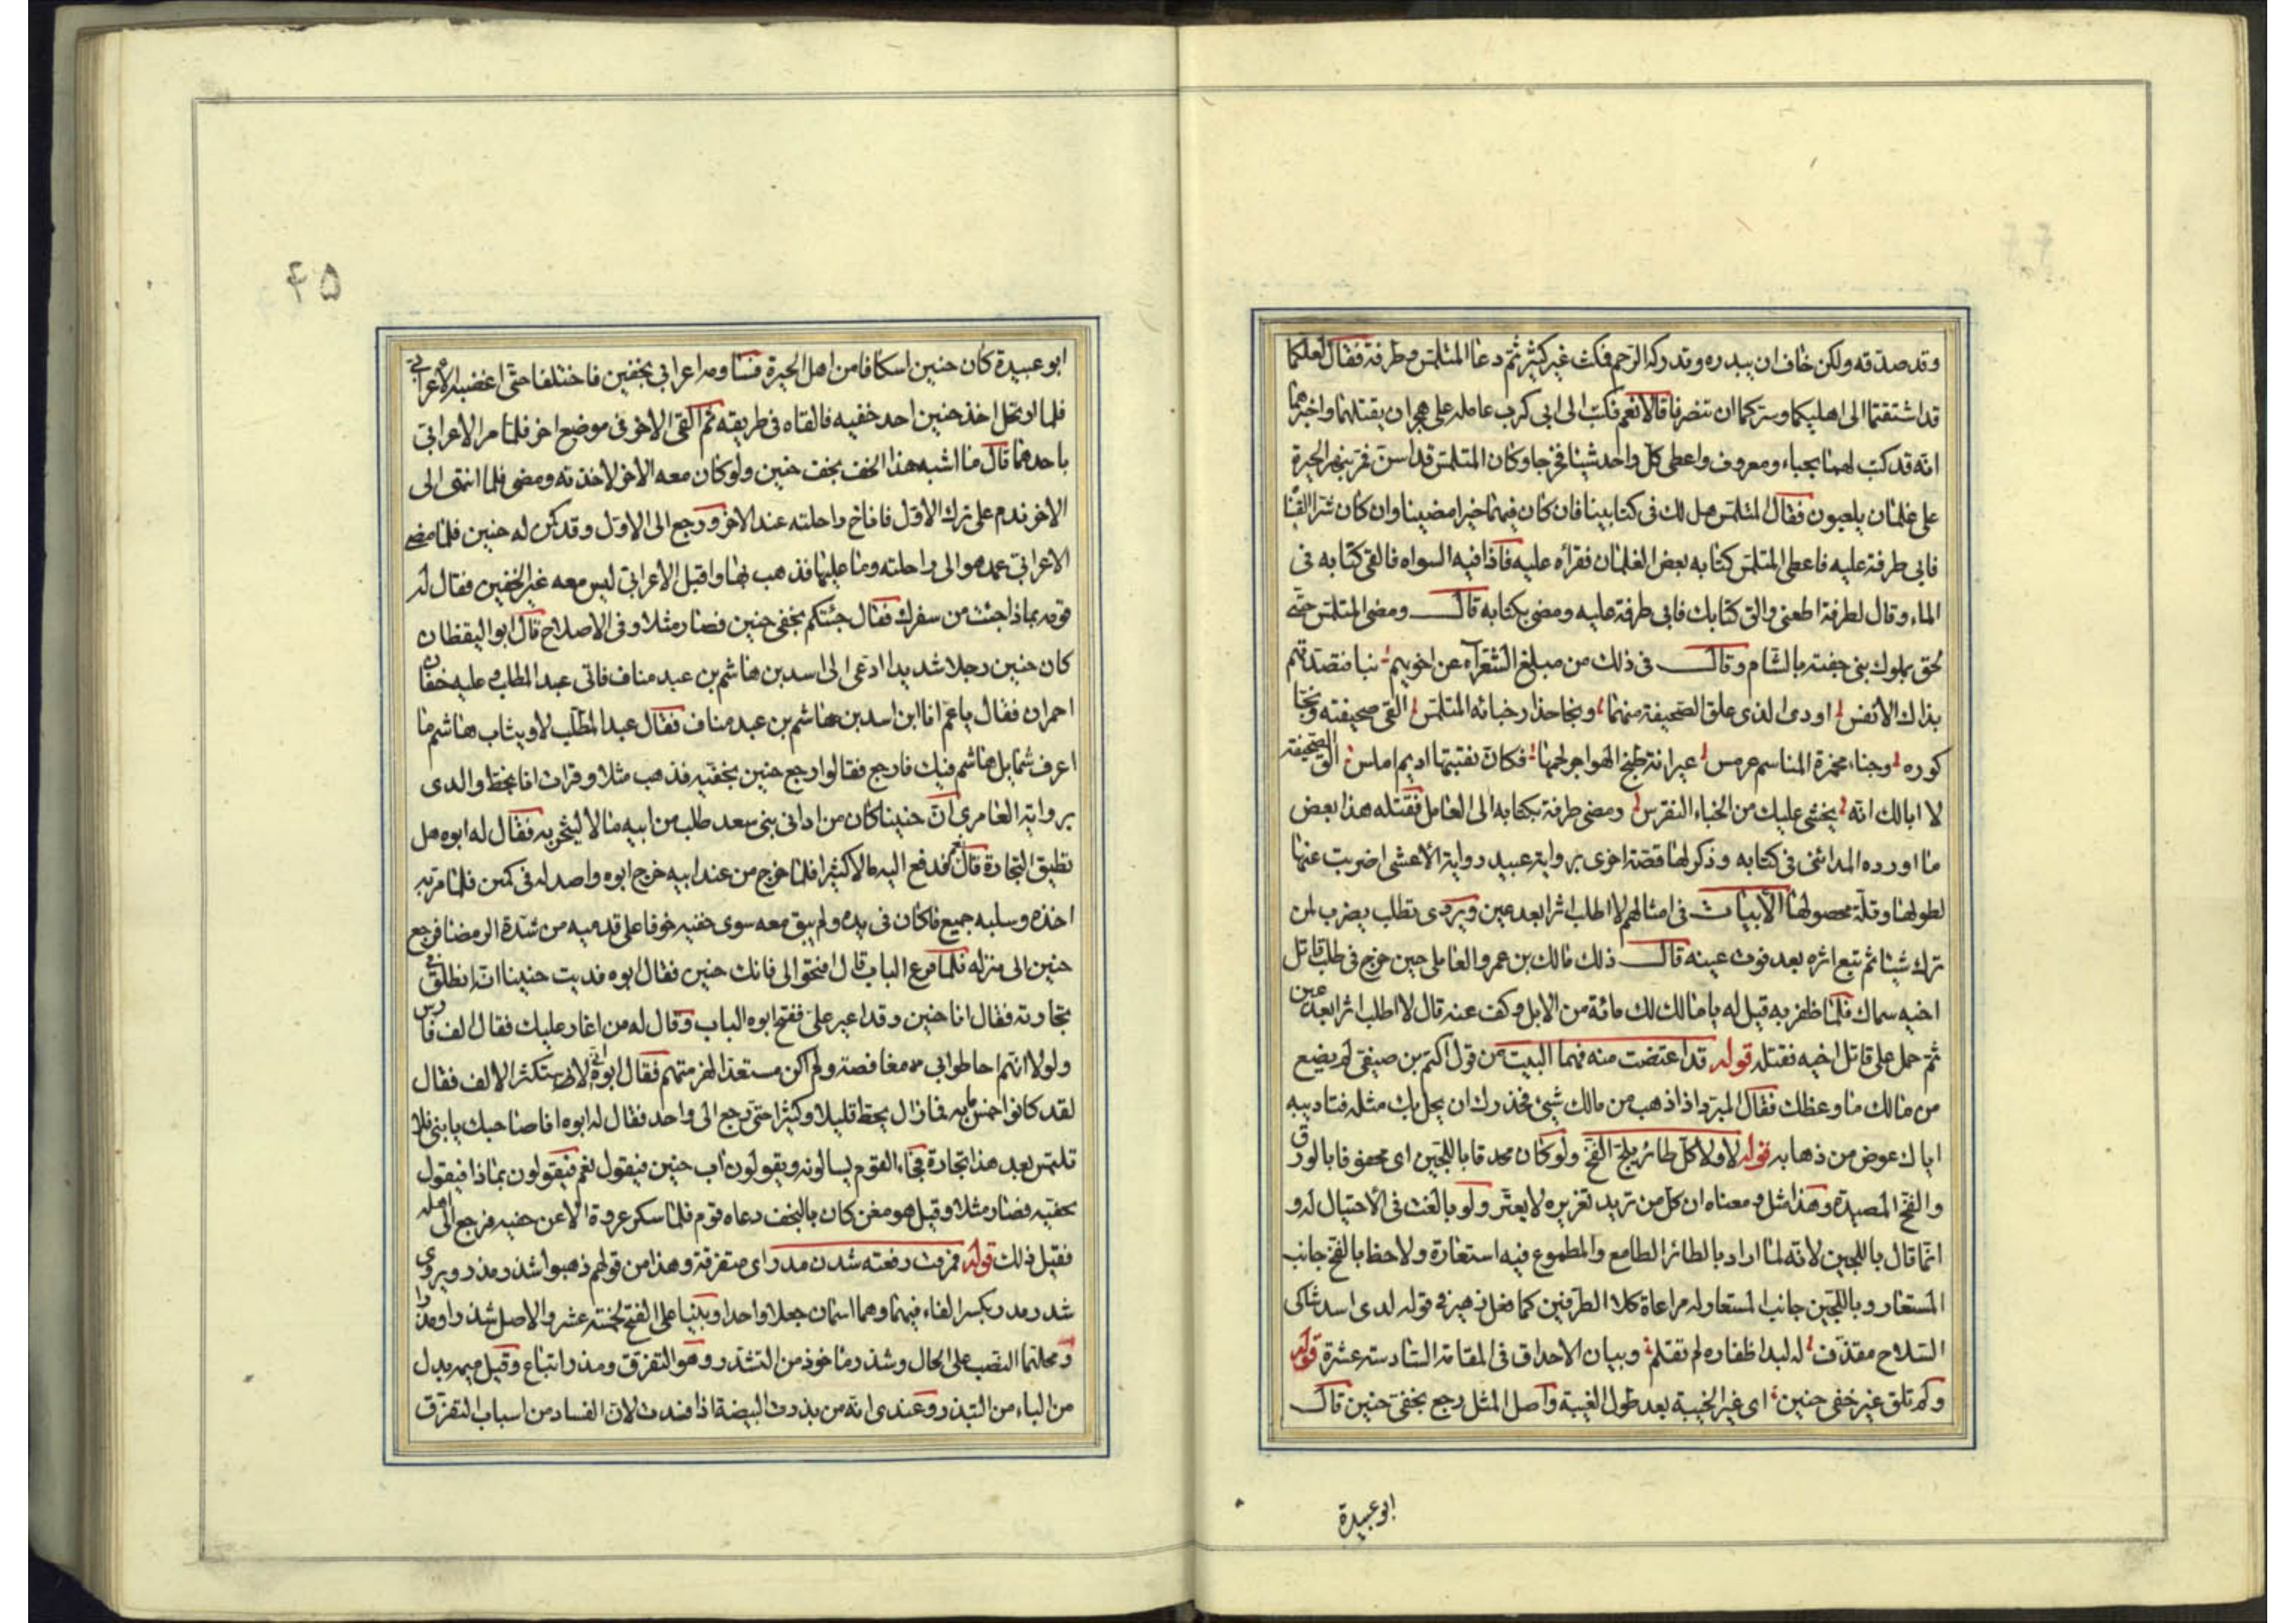 وقد صدقه ولكن خاف ان يبدره وتدركه الرحم فمكث غير كثير ثم دعا المتلمس وطرفة فقال لعلكما
قد اشتقتما الى اهليكما وسركما ان تنصرفا قالا نعم فكتب الى ابى كرب عامله على هجر ان يقتلهما واخبرهما
انه قد كتب لهما بحباء ومعروف واعطى كل واحد شيئا فخرجا وكان المتلمس قد اسن فمر بنهر الحيرة
على غلمان يلعبون فقال المتلمس هل لك فى كتابينا فان كان فيهما خيرا مضينا وان كان شرا القينا
فابى طرفة عليه فاعطى المتلمس كتابه بعض الغلمان فقرأه عليه فاذا فيه السواه فالقى كتابه فى
الماء وقال لطرفة اطعنى والق كتابك فابى طرفة عليه ومضى بكتابه قال ومضى المتلمس حتى
لحق بملوك بنى جفنة بالشام وقال فى ذلك من مبلغ الشعرآء عن اخويهم نبا فتصدقهم
بذاك الانفس اودى الذى علق الصحيفة منهما ونجا حذار حبائه المتلمس القى صحيفته ونجا
كوره وجناء مجمرة المناسم عرمس عيرانة طبخ الهواجر لحمها فكان نقبتها اديم املس الق الصحيفة
لا ابالك انه يخشى عليك من الحباء النقرس ومضى طرفة بكتابه الى العامل فقتله هذا بعض
ما اورده المدائنى فى كتابه وذكر لها قصة اخرى برواية عبيد رواية الاعشى اضربت عنها
لطولها وقلة محصولها الابيات فى امثالهم لا اطلب اثرا بعد عين ويروى تطلب يضرب لمن
ترك شيئا ثم تبع اثره بعد فوت عينه قال ذلك مالك بن عمرو العاملى حين خرج فى طلب قاتل
اخيه سماك فلما ظفر به قيل له يا مالك لك مائة من الابل وكف عنه قال لا اطلب اثرا بعد عين
ثم حمل على قاتل اخيه فقتله قوله قد اعتضت منه فهما البيت من قول اكثم بن صيفى لم يضع
من مالك ما وعظك فقال المبرد اذا ذهب من مالك شئ فحذرك ان يحل بك مثله فتاديبه
اياك عوض من ذهابه قوله لا ولا كل طائر يلج الفخ ولو كان محدقا باللجين اى محفوفا بالورق
والفخ المصيدة وهذا مثل ومعناه ان كل من تريد تغريره لا يغتر ولو بالغت فى الاحتيال له و
انما قال باللجين لانه لما اراد بالطائر الطامع والمطموع فيه استعارة ولاحظ بالفخ جانب
المستعار وباللجين جانب المستعار له مراعاة كلا الطرفين كما فعل زهير فى قوله لدى اسد شاكى
السلاح مقذف له لبد اظفاره لم تقلم وبيان الاحداق فى المقامة السادسة عشرة قوله
ولم تلق غير خفى حنين اى غير الخيبة بعد طول الغيبة واصل المثل رجع بخفى حنين قال
ابو عبيدة
۴۵
ابو عبيدة كان حنين اسكافا من اهل الحيرة فساومه اعرابى بخفين فاختلفا حتى اغضبه الاعرابى
فلما ارتحل اخذ حنين احد خفيه فالقاه فى طريقه ثم القى الاخر فى موضع اخر فلما مر الاعرابى
باحدهما قال ما اشبه هذا الخف بخف حنين ولو كان معه الاخر لاخذته ومضى فلما انتهى الى
الاخر ندم على ترك الاول فاناخ راحلته عند الاخر ورجع الى الاول وقد كمن له حنين فلما مضى
الاعرابى عمد هو الى راحلته وما عليها فذهب بها واقبل الاعرابى ليس معه غير الخفين فقال له
قومه بماذا جئت من سفرك فقال جئتكم بخفى حنين فصار مثلا وفى الاصلاح قال ابو اليقظان
كان حنين رجلا شديدا ادعى الى اسد بن هاشم بن عبد مناف فاتى عبد المطلب وعليه خفان
احمران فقال يا عم انا ابن اسد بن هاشم بن عبد مناف فقال عبد المطلب لا وثياب هاشم ما
اعرف شمايل هاشم فيك فارجع فقالوا رجع حنين بخفيه فذهب مثلا وقرات انا بخط والدى
برواية العامرى ان حنينا كان من ادانى بنى سعد طلب من ابيه مالا ليتجر به فقال له ابوه هل
تطيق التجارة قال نعم فدفع اليه مالا كثيرا فلما خرج من عند ابيه خرج ابوه واصد له فى كمين فلما مر به
اخذه وسلبه جميع ما كان فى يده ولم يبق معه سوى خفيه خوفا على قدميه من شدة الرمضا فرجع
حنين الى منزله فلما قرع الباب قال افتحوا لى فانك حنين فقال ابوه فديت حنينا انه انطلق فى
تجارته فقال انا حنين وقد اغير على ففتح ابوه الباب وقال له من اغار عليك فقال الف فارس
ولولا انهم احاطوا بى مغافصة ولم اكن مستعدا لهزمتهم فقال ابوه انى لاستكثر الالف فقال
لقد كانوا خمس مايه فما زال يحط قليلا وكثيرا حتى رجع الى واحد فقال له ابوه انا صاحبك يا بنى فلا
تلتمس بعد هذا تجارة فجاء القوم يسالونه ويقولون اب حنين فيقول نعم فيقولون بماذا فيقول
بخفيه فصار مثلا وقيل هو مغن كان بالنجف دعاه قوم فلما سكر عروه الا عن خفيه فرجع الى اهله
فقيل ذلك قوله فمزقت رفعته شدن مدر اى متفرقة وهذا من قولهم ذهبوا شذر مذر ويروى
شذر مذر بكسر الفاء فيهما وهما اسمان جعلا واحدا وبنيا على الفتح كخمسة عشر والاصل شذرا ومذرا
ومحلهما النصب على الحال وشذر ماخوذ من التشذر وهو التفرق ومذر اتباع وقيل ميمه بدل
من الباء من التبذر وعندى انه من مذرت البيضة اذا فسدت لان الفساد من اسباب التفرق